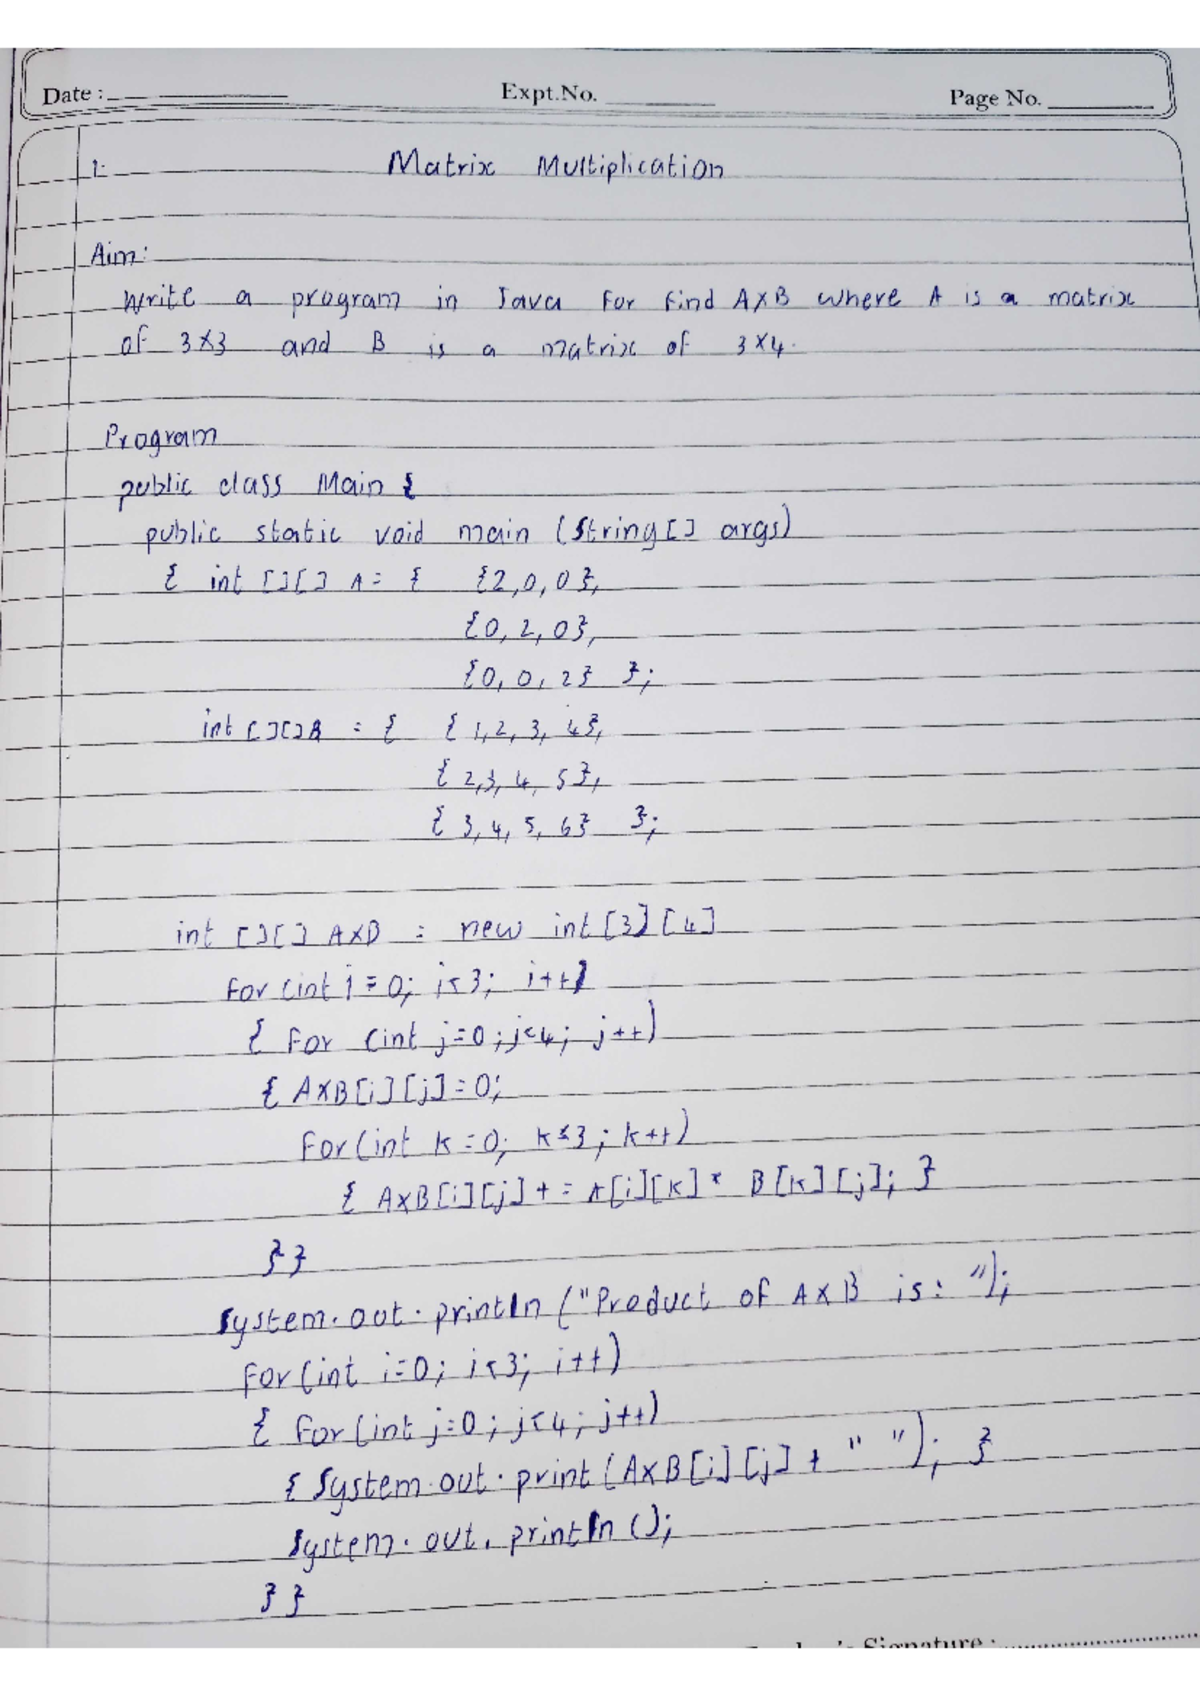 Date :
Expt.No.
Page No.
1. Matrix Multiplication
Aim:
Write a program in Java for find AxB where A is a matrix
of 3x3 and B is a matrix of 3x4.
Program
public class Main {
public static void main (String[] args)
{ int [][] A = { {2,0,0},
{0, 2, 0},
{0, 0, 2} };
int [][] B = { {1,2, 3, 4},
{ 2,3, 4, 5},
{ 3, 4, 5, 6} };
int [][] AxB = new int [3][4]
for (int i = 0; i<3; i++)
{ for (int j=0; j<4; j++)
{ AxB[i][j] = 0;
for (int k = 0; k<3; k++)
{ AxB[i][j] += A[i][k] * B[k][j]; }
} }
System.out.println ("Product of AxB is: ");
for (int i=0; i<3; i++)
{ for (int j=0; j<4; j++)
{ System.out.print (AxB[i][j] + " "); }
System.out.println ();
} }
Signature :